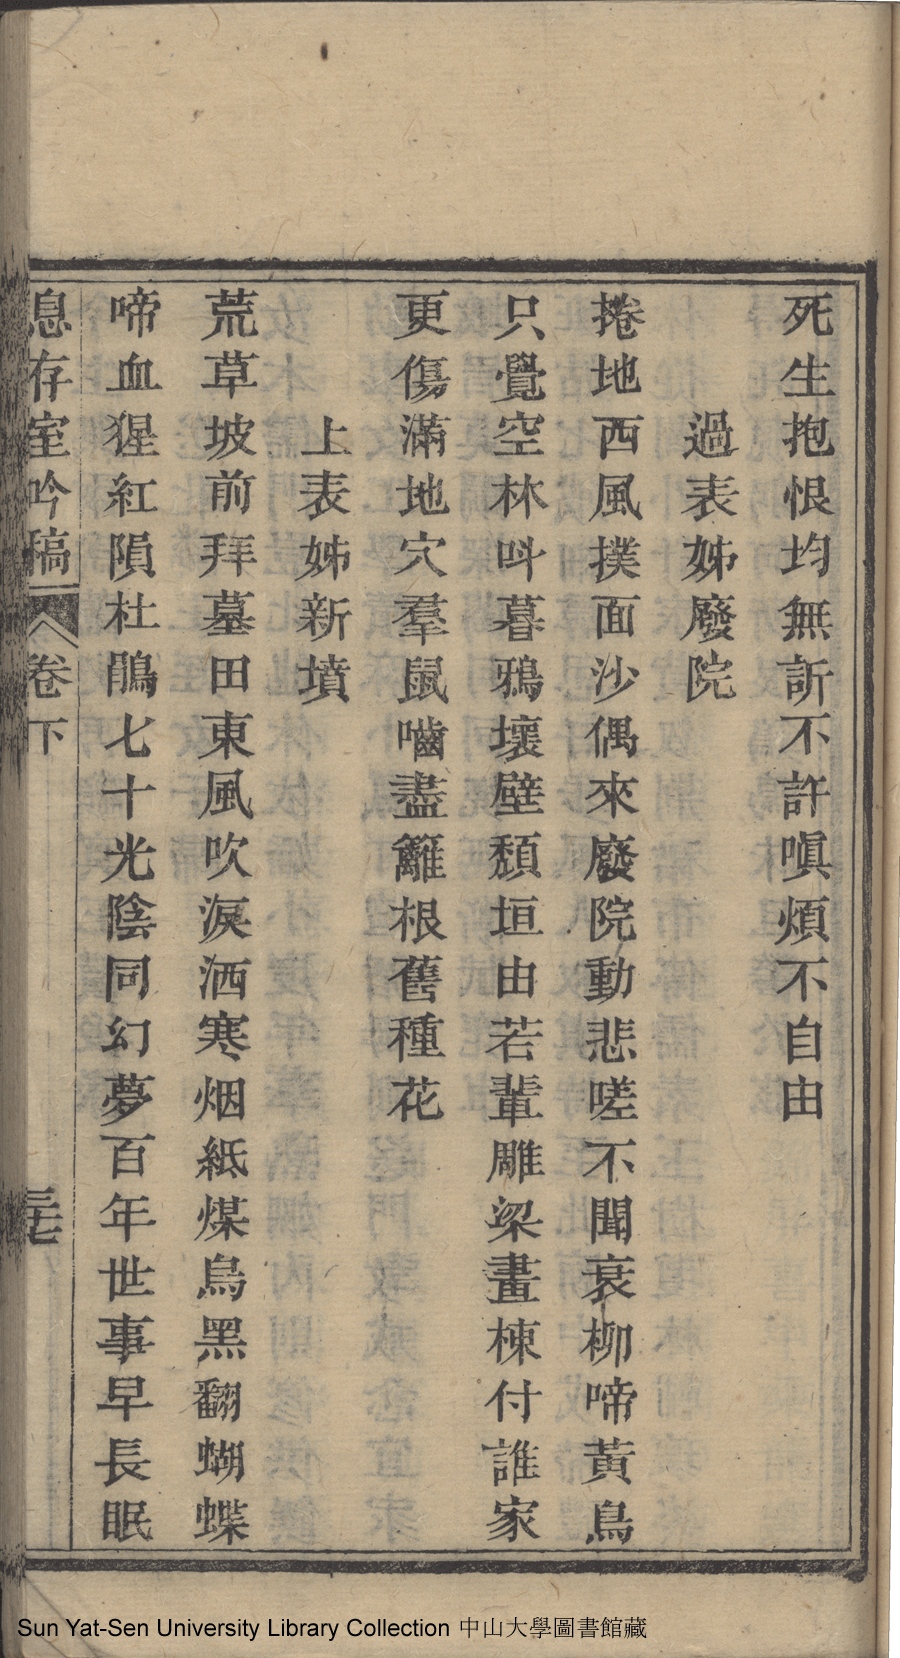 死生抱恨均無訢不許嗔煩不自由
過表姊廢院
捲地西風撲面沙偶來廢院動悲嗟不聞衰柳啼黃鳥
只覺空林呌暮鴉壞壁頽垣由若輩雕梁畫棟付誰家
更傷滿地穴羣鼠嚙盡籬根舊種花
上表姊新墳
荒草坡前拜墓田東風吹淚洒寒烟紙煤烏黑翻蝴蝶
啼血猩紅隕杜鵑七十光陰同幻夢百年世事早長眠
息存室吟稿 卷下 三七
Sun Yat-Sen University Library Collection 中山大學圖書館藏